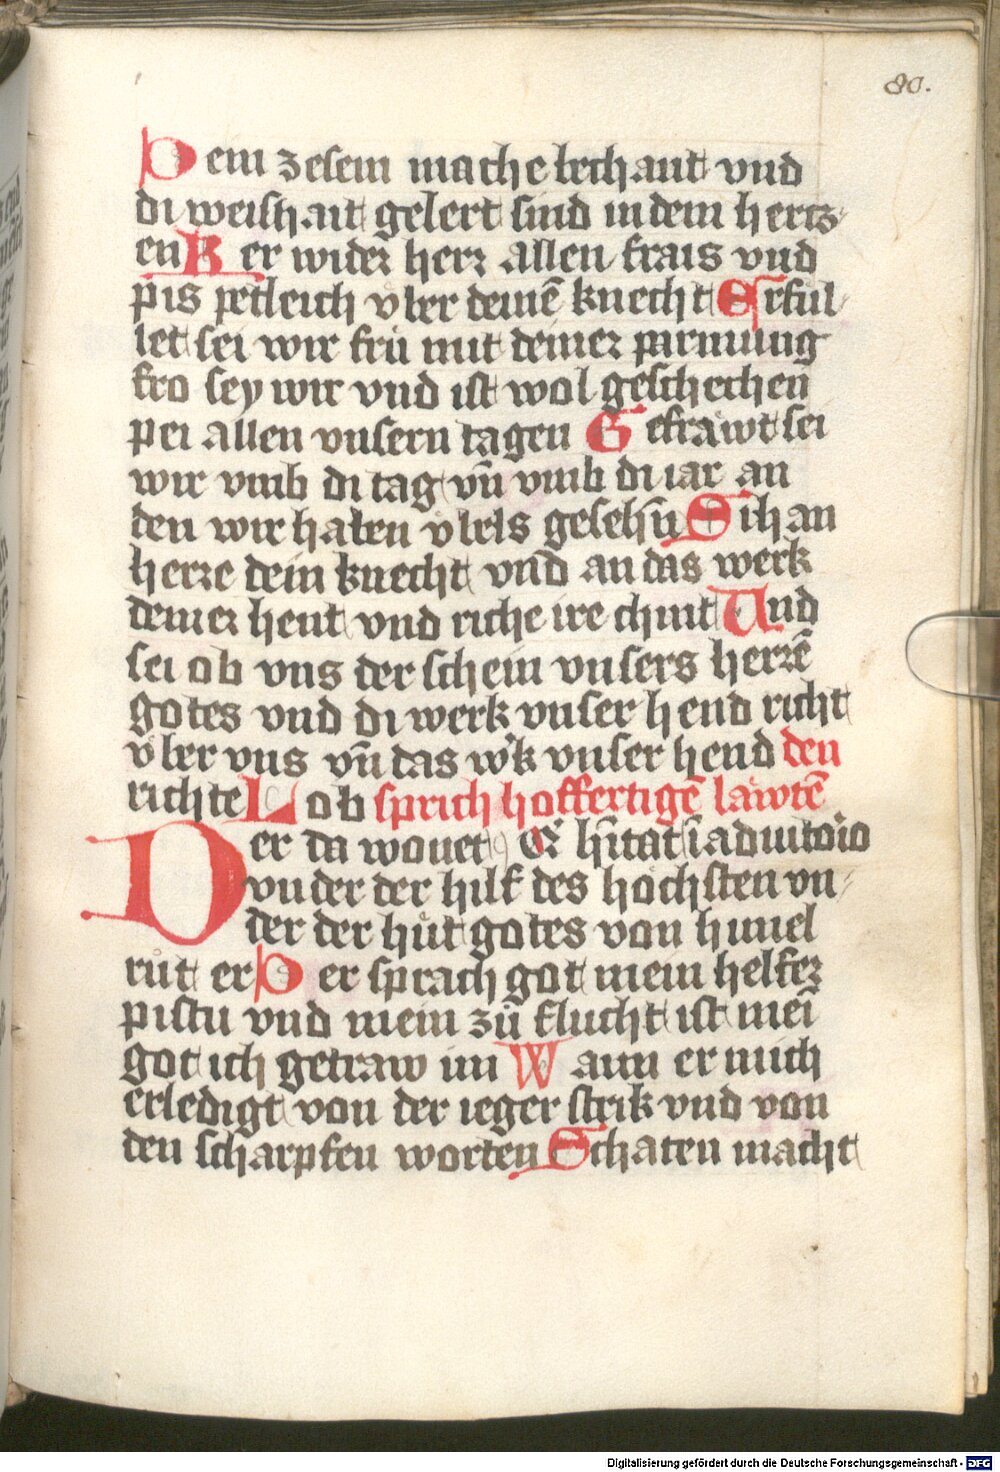 80.
Dein zesem mache bechant vnd
di weishait gelert sind in dem hertz-
en Ker wider herr allen frais vnd
pis petleich vber deinē knecht Erful-
let sei wir frü mit deiner parmung
fro sey wir vnd ist wol geschechen
pei allen vnsern tagen Gefräwt sei
wir vmb di tag vn̄ vmb di iar an
den wir haben vbels gesehn̄ Sih an
herre dein knecht vnd an das werk
deiner hent vnd riche ire chint Und
sei ob vns der schein vnsers herrē
gotes vnd di werk vnser hend richt
vber vns vn̄ das wk vnser hend den
richte Lob sprich hoffertigē läwtē
Der da wonet Qi h̄itat ī adiutorio
vnder der hilf des höchsten vn-
der der hüt gotes von himel
rüt er Der sprach got mein helfer
pistu vnd mein zü flucht ist mei
got ich getraw im Wann er mich
erledigt von der ieger strik vnd von
den scharpfen worten Schaten macht
Digitalisierung gefördert durch die Deutsche Forschungsgemeinschaft - DFG